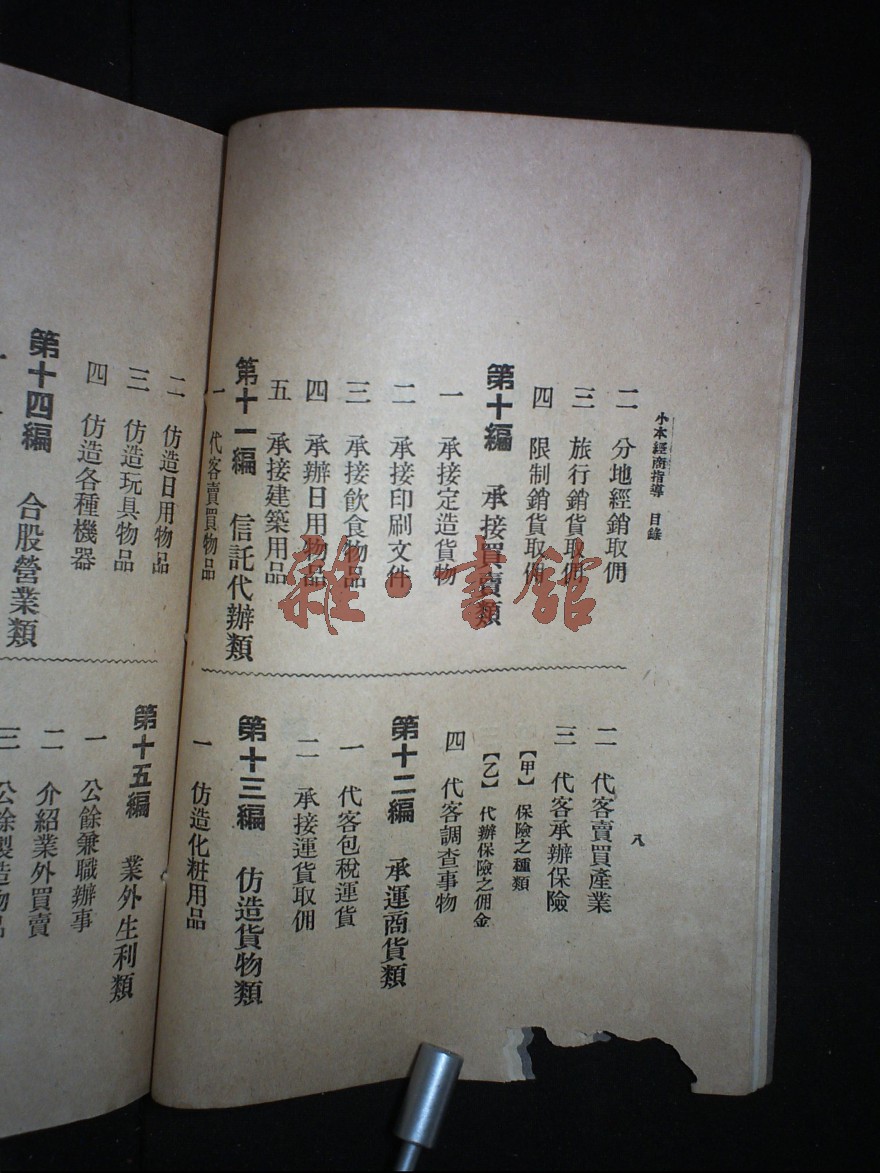 小本經商指導 目錄
八
二 分地經銷取佣
三 旅行銷貨取佣
四 限制銷貨取佣
第十編 承接買賣類
一 承接定造貨物
二 承接印刷文件
三 承接飲食物品
四 承辦日用物品
五 承接建築用品
第十一編 信託代辦類
一 代客賣買物品
二 代客賣買產業
三 代客承辦保險
【甲】 保險之種類
【乙】 代辦保險之佣金
四 代客調查事物
第十二編 承運商貨類
一 代客包稅運貨
二 承接運貨取佣
第十三編 仿造貨物類
一 仿造化粧用品
二 仿造日用物品
三 仿造玩具物品
四 仿造各種機器
第十四編 合股營業類
第十五編 業外生利類
一 公餘兼職辦事
二 介紹業外買賣
三 公餘製造物品
雜·書館